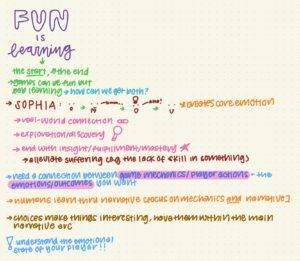 FUN
is
learning
the start, & the end
games can be fun but
not learning → how can we get both?
→ SOPHIA:
→ creates core emotion
→ real-world connection
→ exploration/discovery
→ end with insight/fulfillment/mastery
→ alleviate suffering (eg. the lack of skill in something)
→ need a connection between game mechanics/player actions - the
emotions/outcomes you want
→ humans learn thru narrative (focus on mechanics and narrative)
→ choices make things interesting, have them within the main
narrative arc
! understand the emotional
state of your player!!